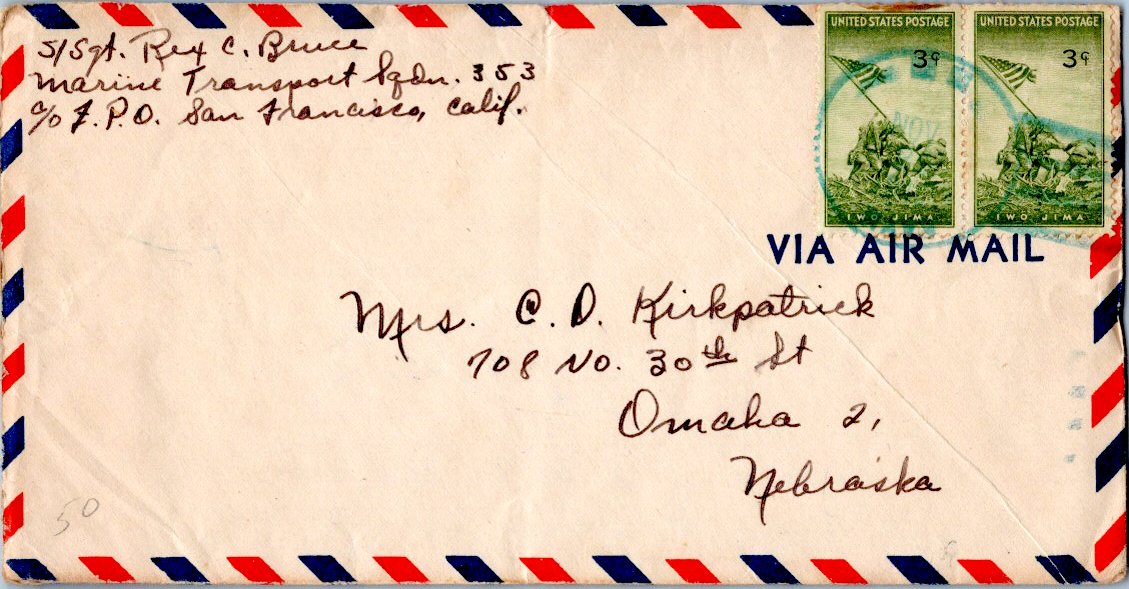 S/Sgt. Rex C. Bruce
Marine Transport Sqdn. 353
c/o F.P.O. San Francisco, Calif.
UNITED STATES POSTAGE
3¢
IWO JIMA
UNITED STATES POSTAGE
3¢
IWO JIMA
NOV
VIA AIR MAIL
Mrs. C. D. Kirkpatrick
708 No. 30th St
Omaha 2,
Nebraska
50